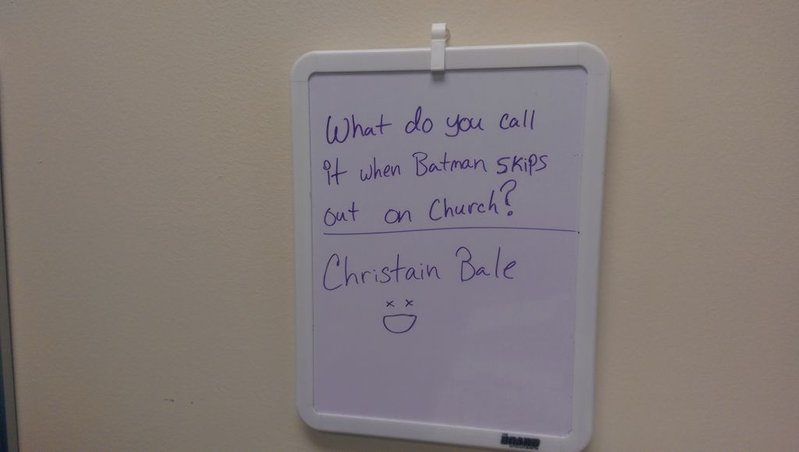 What do you call
it when Batman skips
out on Church?
Christain Bale